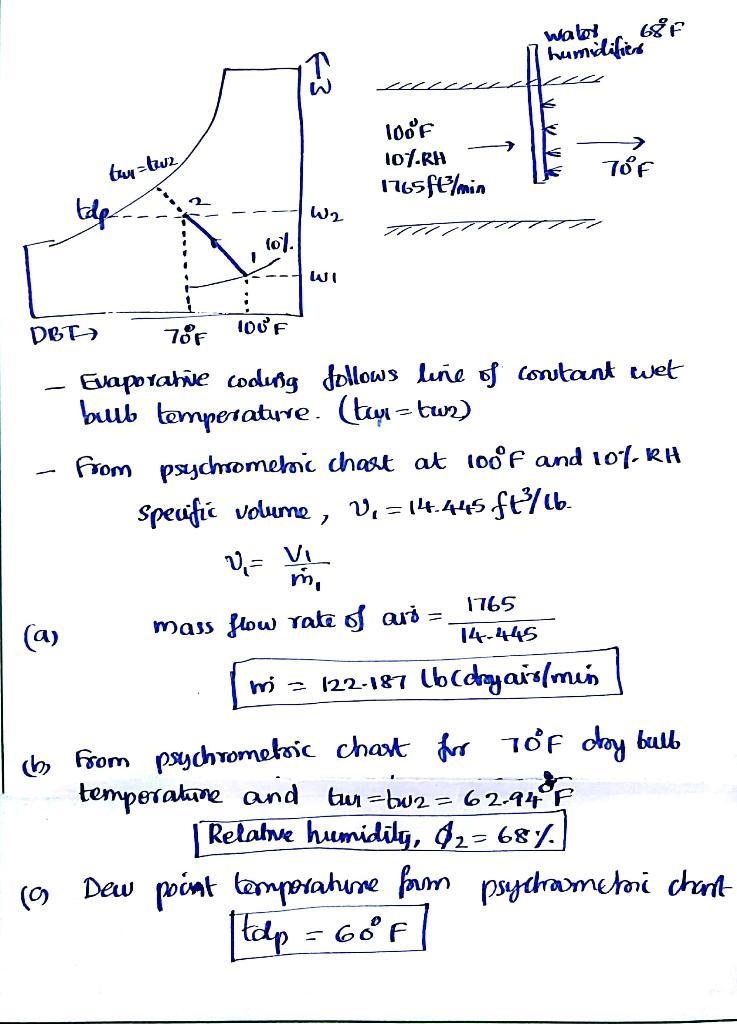 W
tw1=tw2
tdp
2
W2
1
10%
W1
DBT→
70°F
100°F
water 68°F
humidifier
100°F
10%RH
1765ft³/min
70°F
- Evaporative cooling follows line of constant wet
bulb temperature. (tw1=tw2)
- From psychrometric chart at 100°F and 10% RH
specific volume, v₁ = 14.445 ft³/lb.
v₁ = V₁/ṁ₁
(a) mass flow rate of air = 1765/14.445
ṁ = 122.187 lb(dryair/min
(b) From psychrometric chart for 70°F dry bulb
temperature and tw1=tw2 = 62.94°F
Relative humidity, φ₂ = 68%.
(c) Dew point temperature from psychrometric chart
tdp = 60°F